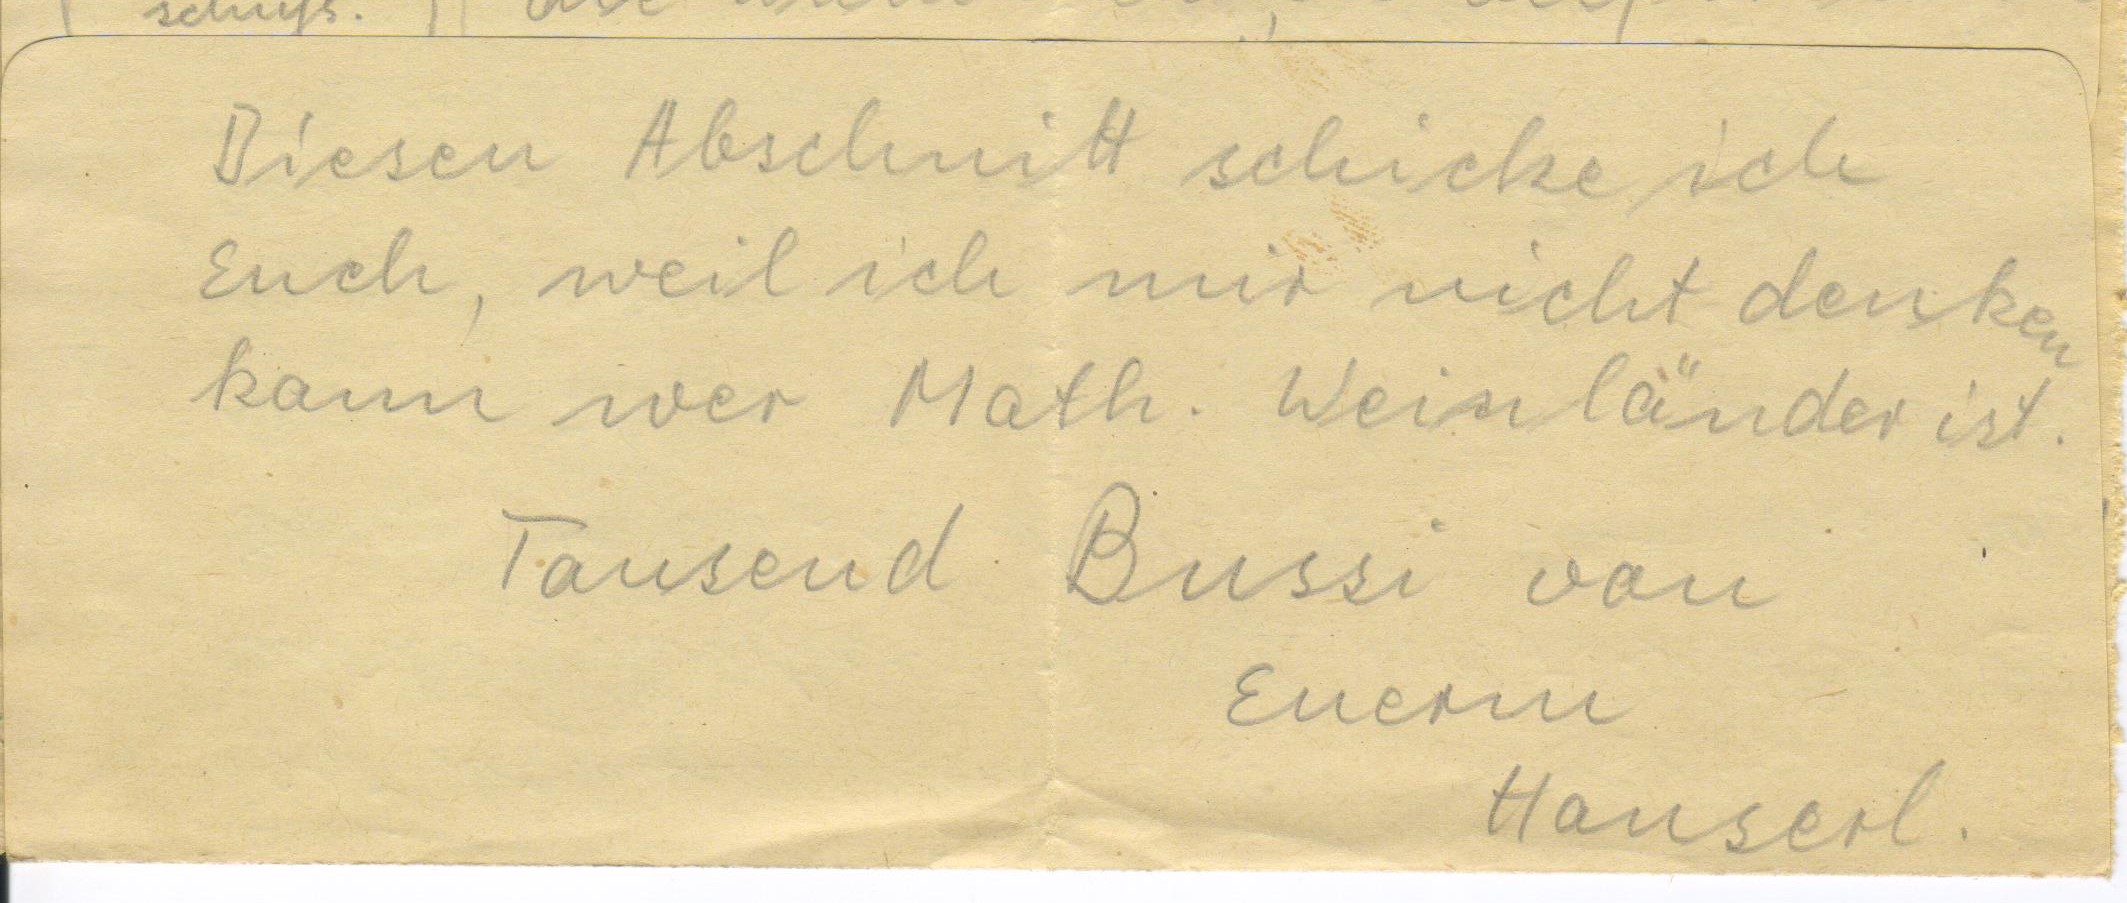 schuß.
Diesen Abschnitt schicke ich
Euch, weil ich mir nicht denken
kann wer Math. Weinländer ist.
Tausend Bussi von
Euerm
Hanserl.